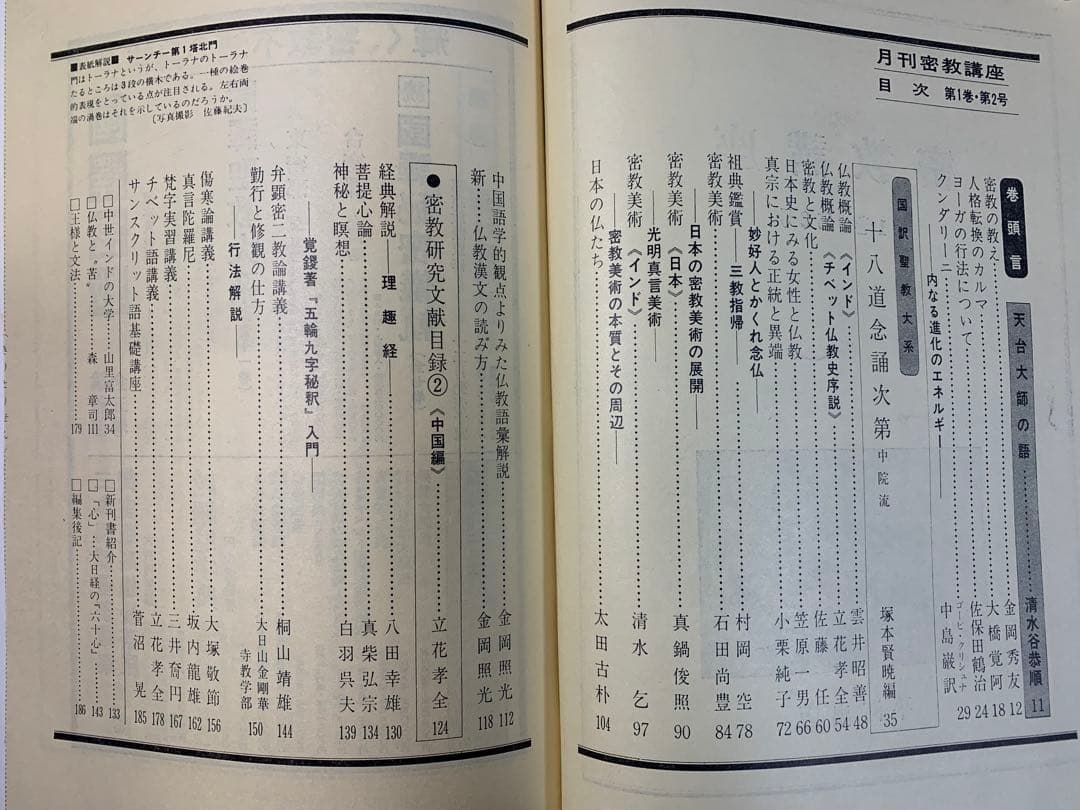 月刊密教講座
目次 第1巻・第2号
巻頭言 天台大師の語……清水谷恭順 11
密教の教え……金岡秀友 12
人格転換のカルマ……大橋覚阿 18
ヨーガの行法について……佐保田鶴治 24
クンダリーニ
内なる進化のエネルギー
ゴーピ・クリシュナ
中島巌訳 29
国訳聖教大系
十八道念誦次第 中院流 塚本賢暁編 35
仏教概論《インド》……雲井昭善 48
仏教概論《チベット仏教史序説》……立花孝全 54
密教と文化……佐藤任 60
日本史にみる女性と仏教……笠原一男 66
真宗における正統と異端……小栗純子 72
――妙好人とかくれ念仏
祖典鑑賞 三教指帰……村岡空 78
密教美術……石田尚豊 84
――日本の密教美術の展開――
密教美術《日本》……真鍋俊照 90
――光明真言美術――
密教美術《インド》……清水乞 97
――密教美術の本質とその周辺――
日本の仏たち……太田古朴 104
中国語学的観点よりみた仏教語彙解説……金岡照光 112
新……仏教漢文の読み方……金岡照光 118
●密教研究文献目録②《中国編》……立花孝全 124
経典解説 理趣経……八田幸雄 130
菩提心論……真柴弘宗 134
神秘と瞑想……白羽呉夫 139
――覚鑁著『五輪九字秘釈』入門――
弁顕密二教論講義……桐山靖雄 144
勤行と修観の仕方……大日山金剛華寺教学部 150
――行法解説――
傷寒論講義……大塚敬節 156
真言陀羅尼……坂内龍雄 162
梵字実習講義……三井奝円 167
チベット語講義……立花孝全 178
サンスクリット語基礎講座……菅沼晃 185
□中世インドの大学……山里富太郎 34
□仏教と〝苦〟……森章司 111
□王様と文法……179
□新刊書紹介……133
□「心」…大日経の『六十心』……143
□編集後記……186
■表紙解説■ サーンチー第1塔北門
門はトーラナというが、トーラナのトーラナ
たるところは3段の横木である。一種の絵巻
的表現をとっている点が注目される。左右両
端の渦巻はそれを示しているのだろうか。
〔写真撮影 佐藤紀夫〕